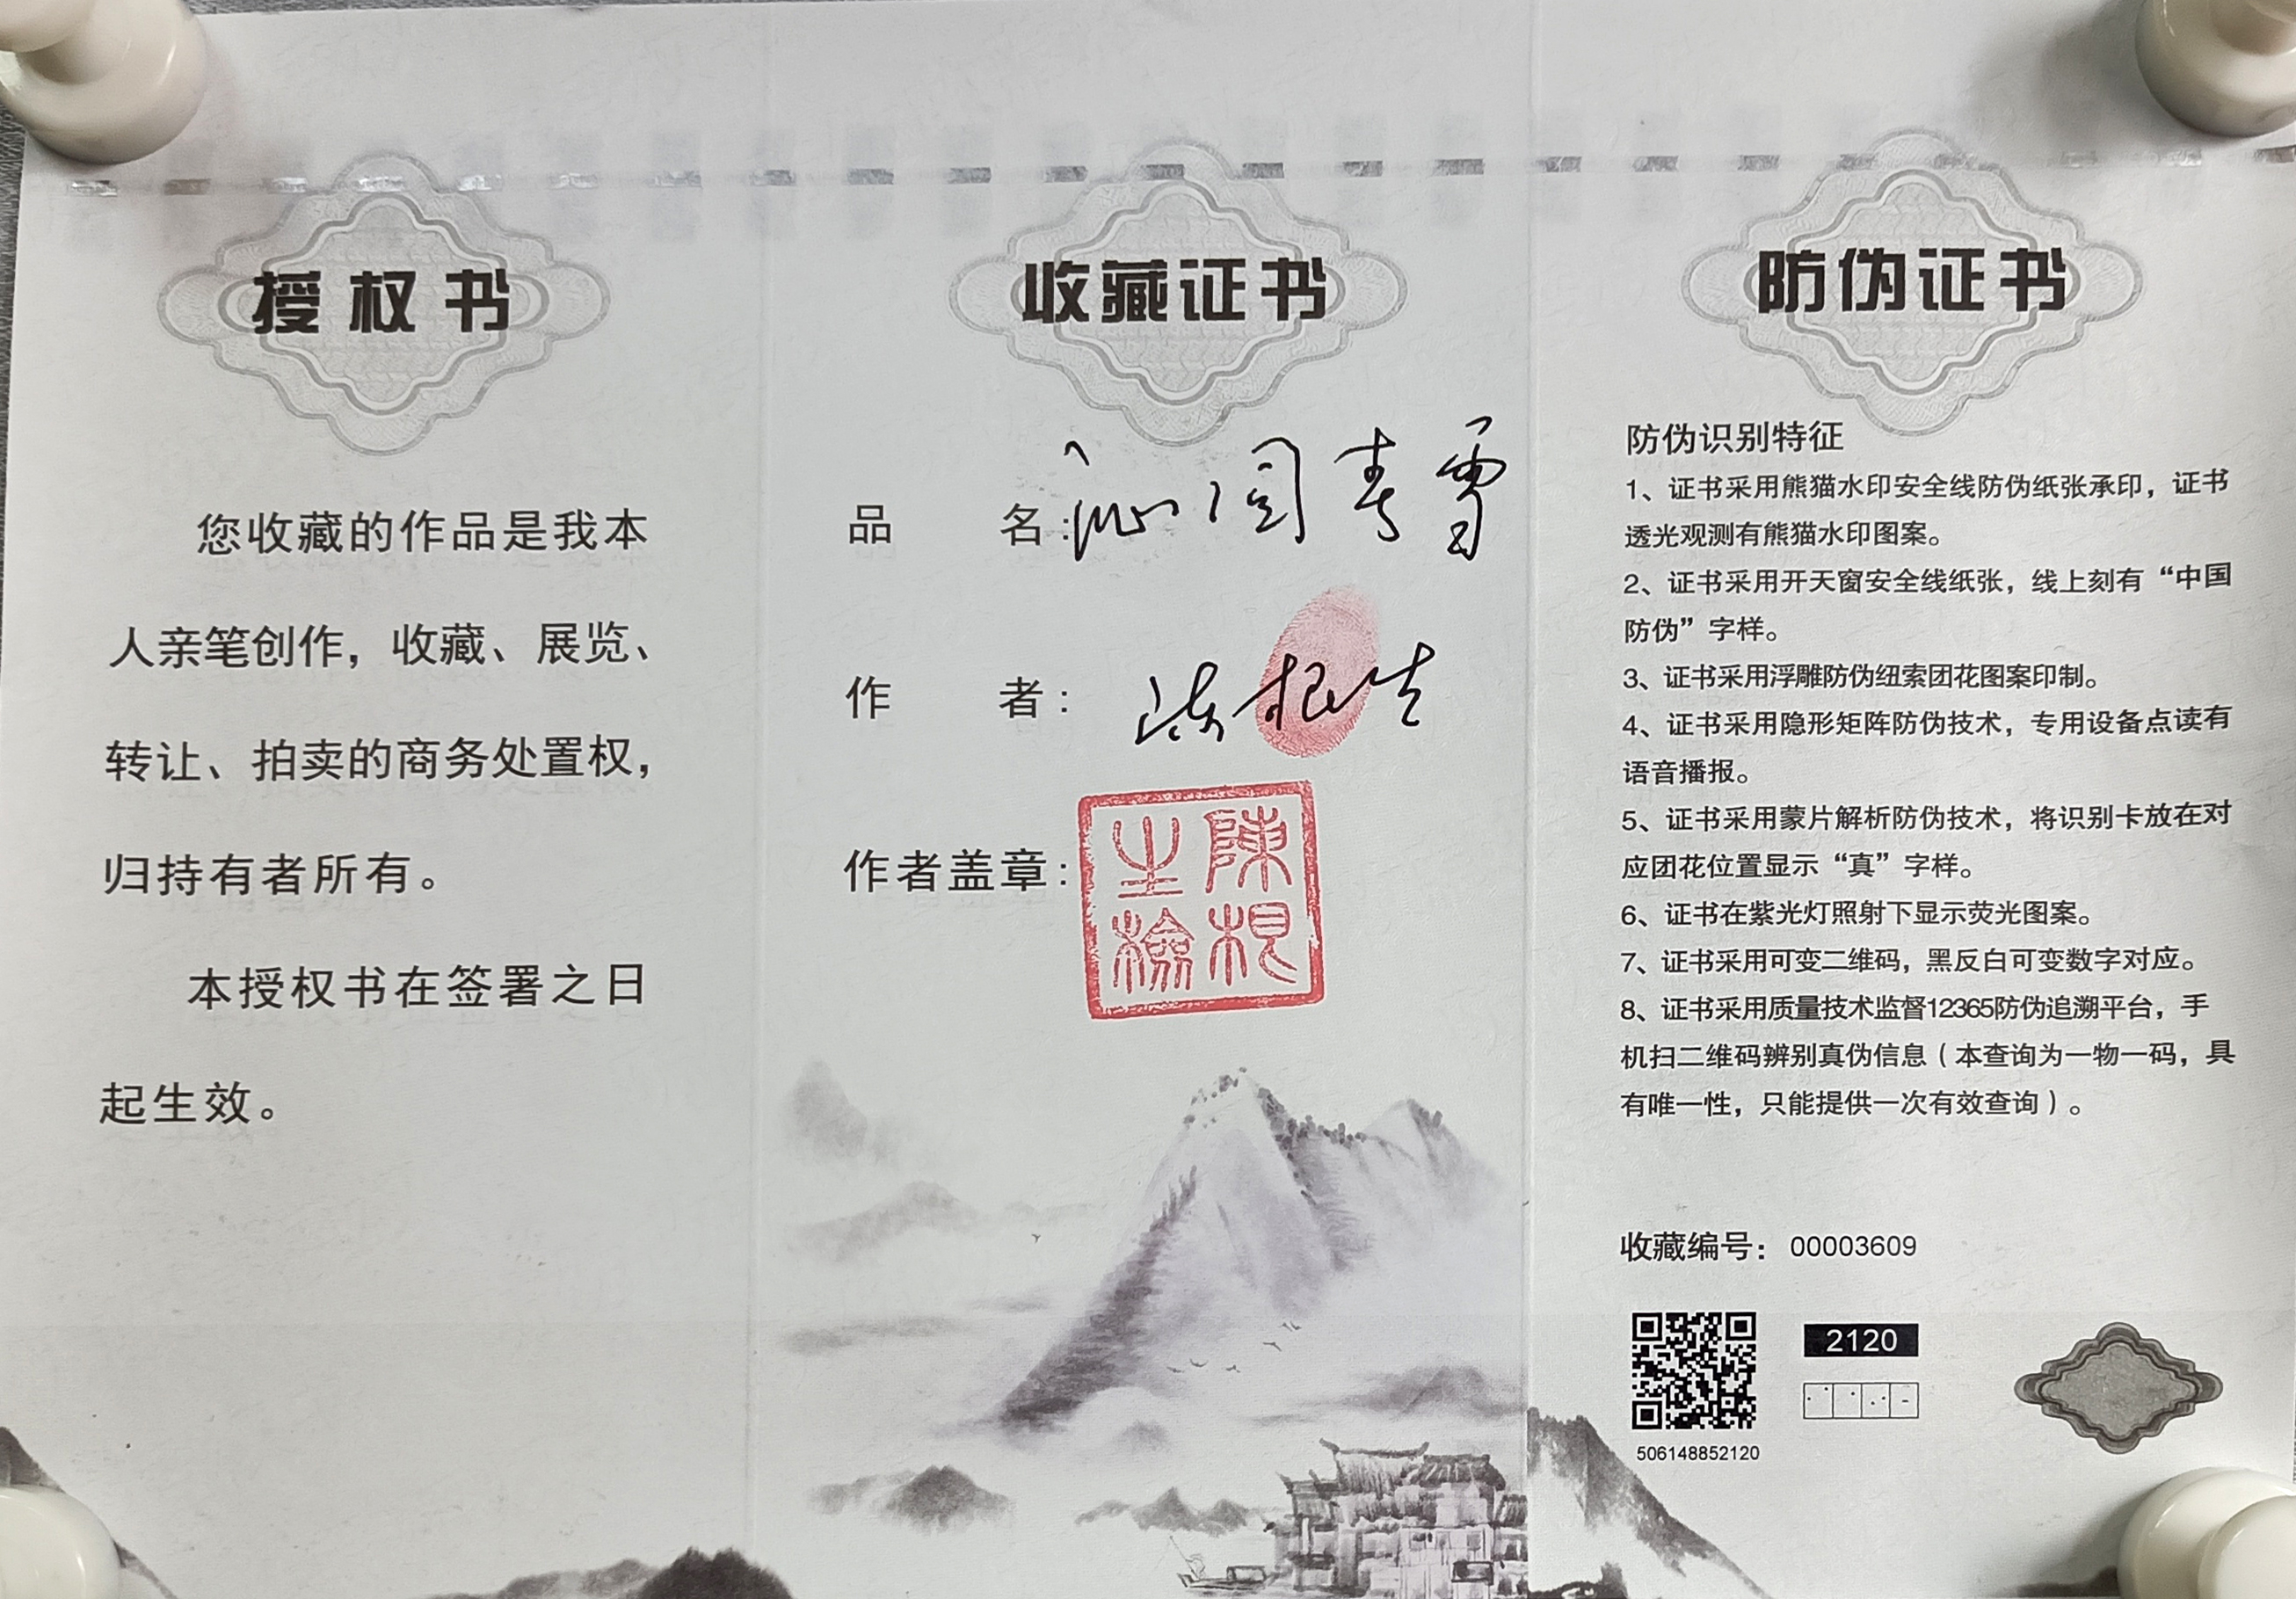 授权书
您收藏的作品是我本
人亲笔创作，收藏、展览、
转让、拍卖的商务处置权，
归持有者所有。
本授权书在签署之日
起生效。
收藏证书
品 名：沁园春雪
作 者：陈根生
作者盖章：
陳根
生檢
防伪证书
防伪识别特征
1、证书采用熊猫水印安全线防伪纸张承印，证书
透光观测有熊猫水印图案。
2、证书采用开天窗安全线纸张，线上刻有“中国
防伪”字样。
3、证书采用浮雕防伪纽索团花图案印制。
4、证书采用隐形矩阵防伪技术，专用设备点读有
语音播报。
5、证书采用蒙片解析防伪技术，将识别卡放在对
应团花位置显示“真”字样。
6、证书在紫光灯照射下显示荧光图案。
7、证书采用可变二维码，黑反白可变数字对应。
8、证书采用质量技术监督12365防伪追溯平台，手
机扫二维码辨别真伪信息（本查询为一物一码，具
有唯一性，只能提供一次有效查询）。
收藏编号：00003609
2120
506148852120